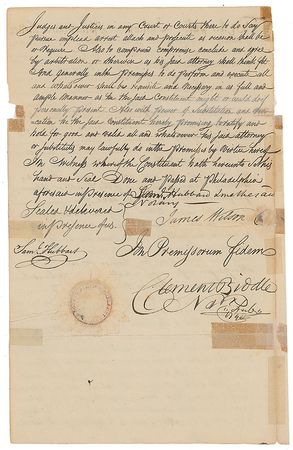 Judges and Justices in any Court or Courts there to do say
pursue implead arrest attach and prosecute as occasion shall be
or Require Also to compound compromise conclude and agree
by arbitration or otherwise as his said attorney shall think fit
And generally in the premises to do perform and execute all
and whatsoever shall be requisite and necessary in as full and
ample Manner as he the said Constituent might or could do if
personally present Also with Power of Substitution and Revo-
cation he the said Constituent hereby promising to ratify and
hold for good and valid all and whatsoever his said attorney
or Substitutes may lawfully do in the premises by Virtue hereof
In Witness whereof the Constituent hath hereunto set his
hand and Seal Done and passed at Philadelphia
aforesaid in presence of Saml Hubbard and me the said
Notary
Sealed & delivered
in presence of us
James Wilson
Saml Hubbard
In Premissorum fidem
Clement Biddle